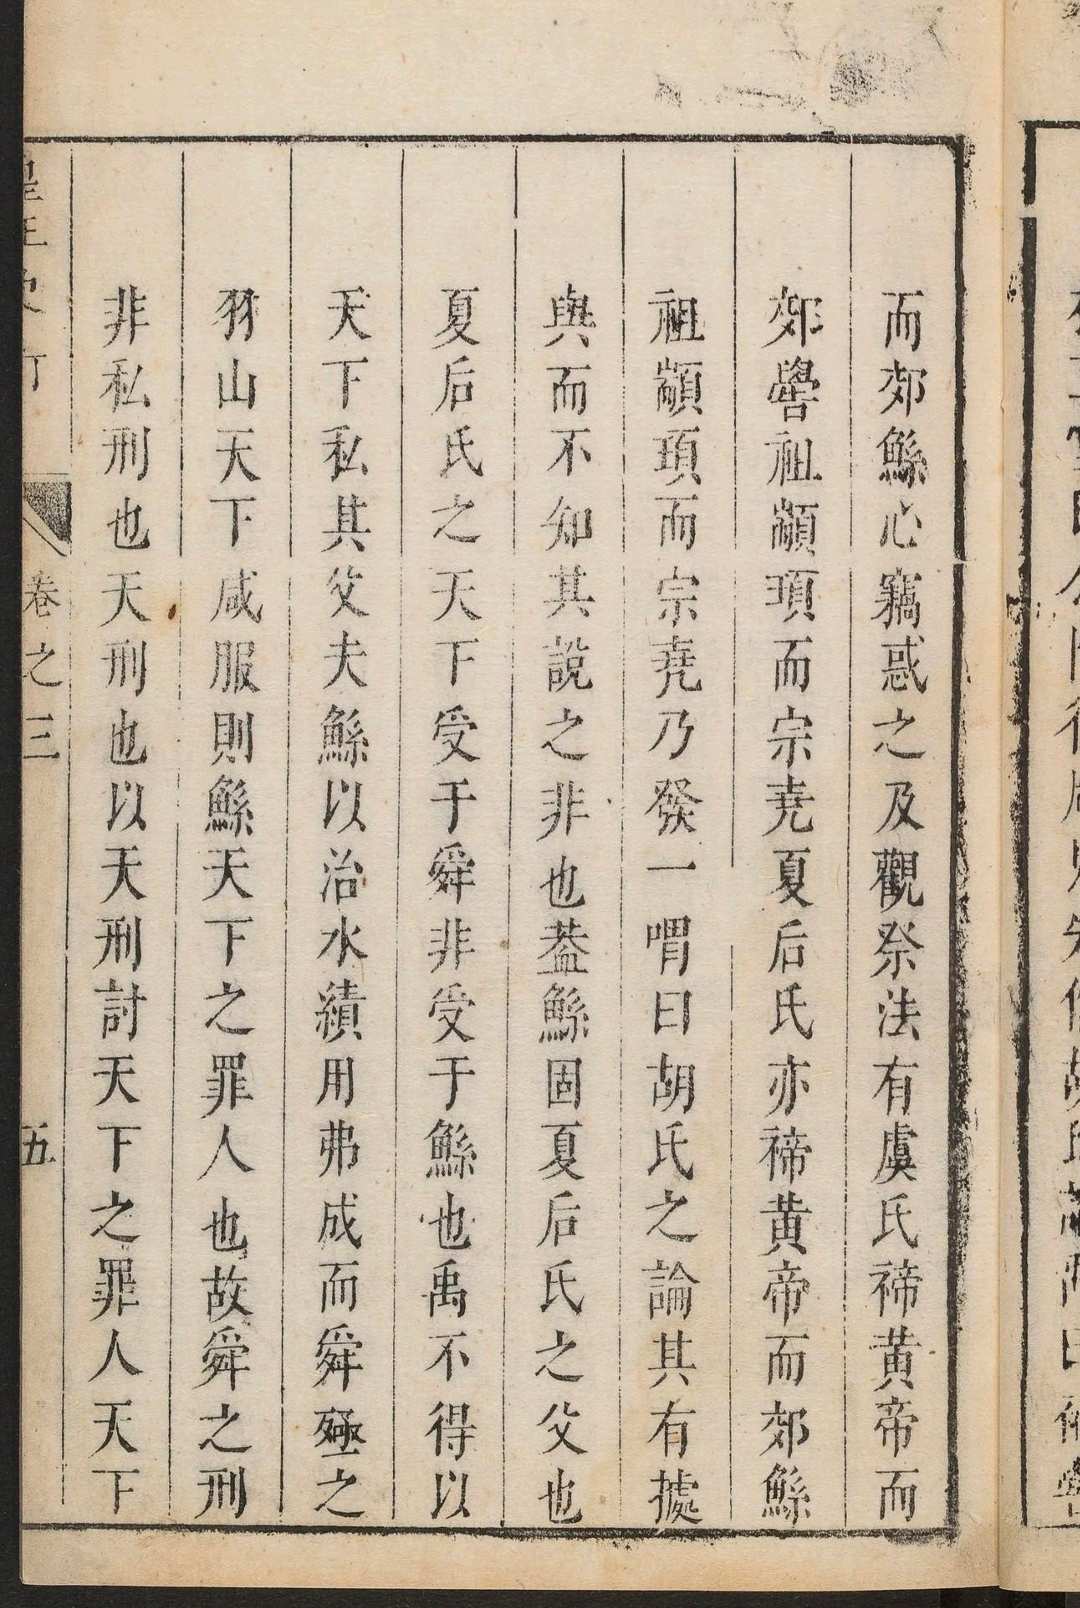 而郊鯀心竊惑之及觀祭法有虞氏禘黃帝而
郊嚳祖顓頊而宗堯夏后氏亦禘黃帝而郊鯀
祖顓頊而宗堯乃發一喟曰胡氏之論其有據
與而不知其說之非也葢鯀固夏后氏之父也
夏后氏之天下受于舜非受于鯀也禹不得以
天下私其父夫鯀以治水績用弗成而舜殛之
羽山天下咸服則鯀天下之罪人也故舜之刑
非私刑也天刑也以天刑討天下之罪人天下
皇王史訂 卷之三 五